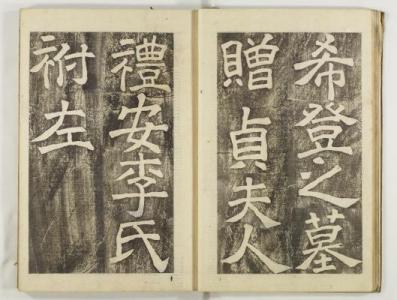 希登之墓
贈貞夫人
禮安李氏
祔左